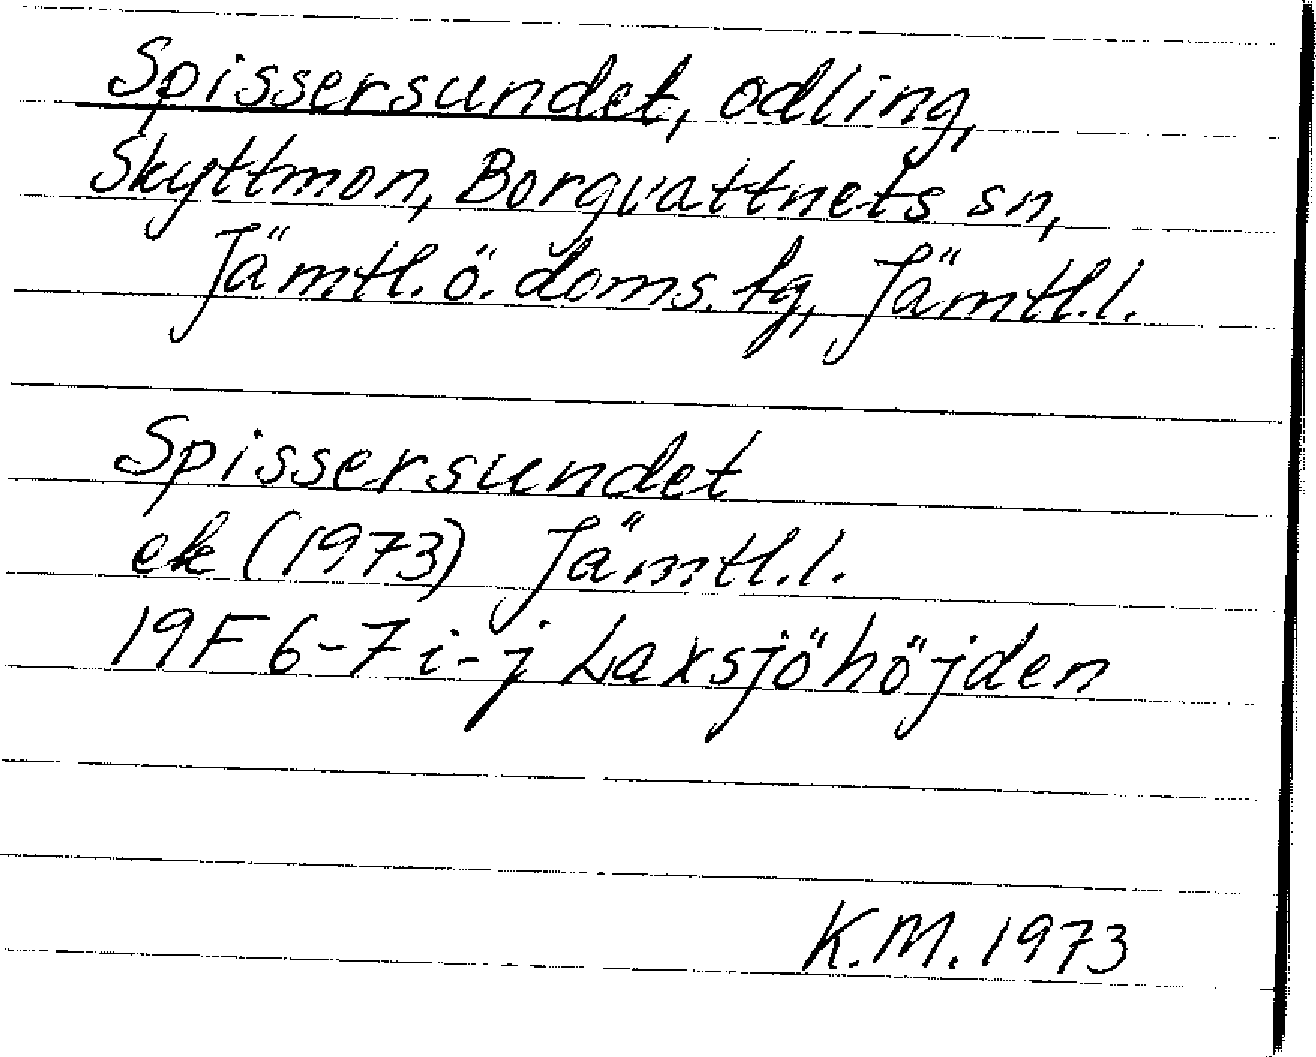 Spissersundet, odling,
Skyttmon, Borgvattnets sn,
Jämtl. ö. doms. tg, Jämtl. l.
Spissersundet
ek (1973) Jämtl. l.
19F 6-7 i-j Laxsjöhöjden
K.M. 1973